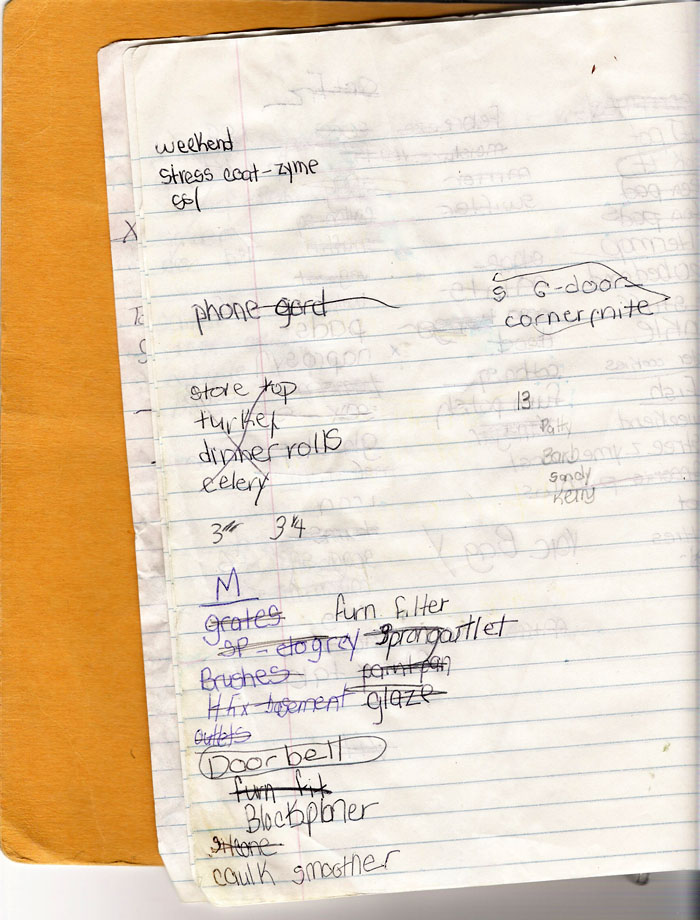 weekend
stress coat-zyme
phone gard
6-door
store top
turkey
dinner rolls
celery
13
Patty
Barb
Sandy
Kerry
3" 3"4
M
grates
furn filter
grey
3prongoutlet
Brushes
paintpan
basement
glaze
outlets
Doorbell
furn filt
Blockplaner
silicone
caulk smoother